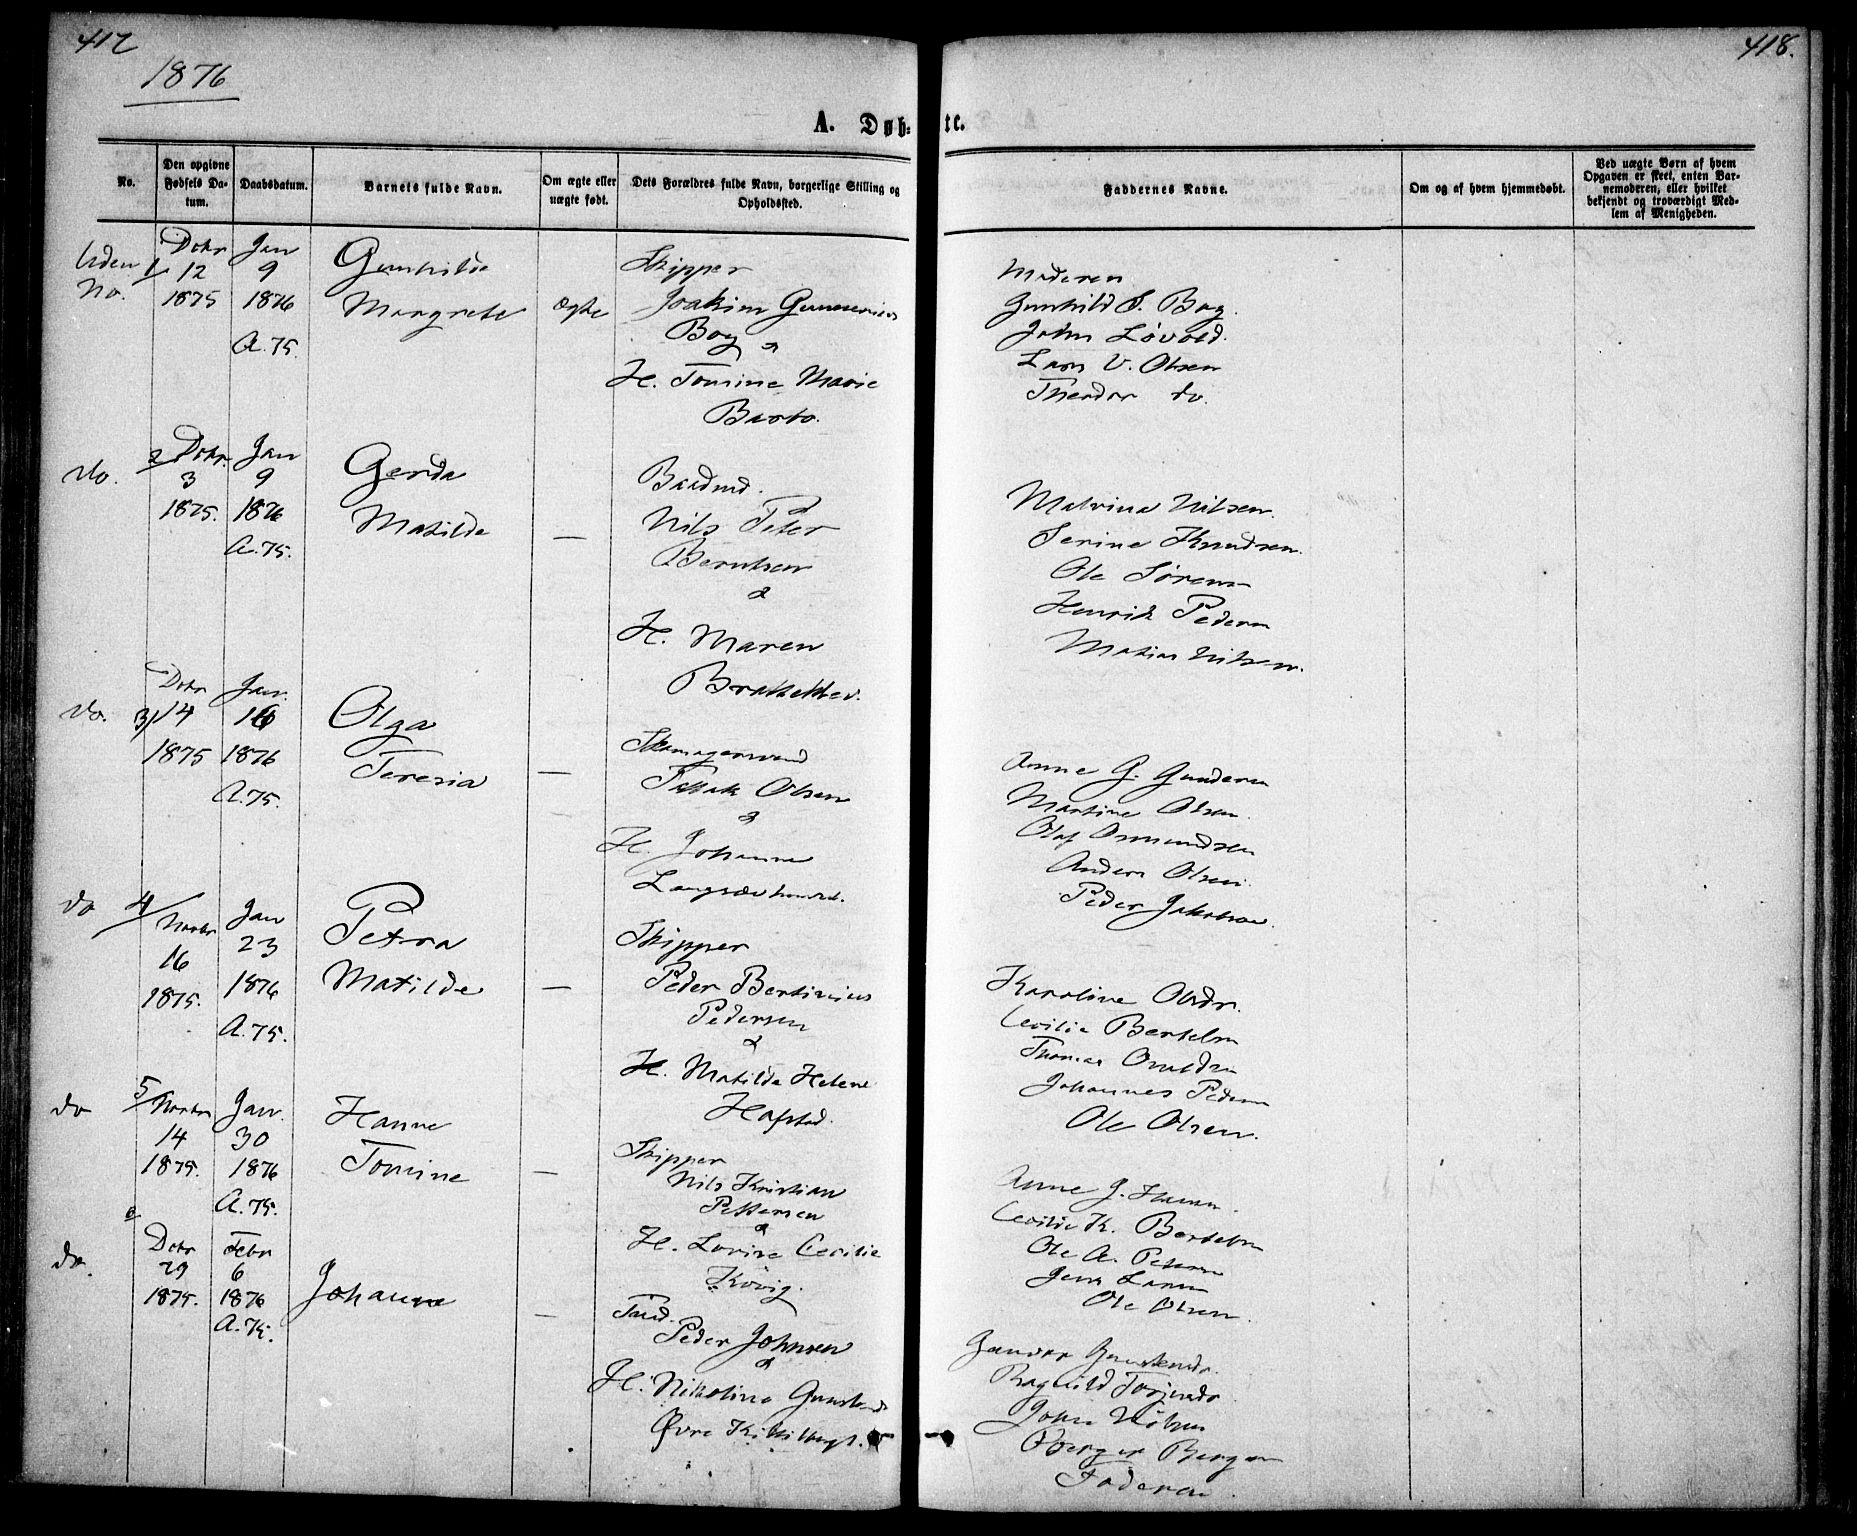 417
418.
1876
A. Døb- te.
No.
Den opgivne Fødsels Da- tum.
Daabsdatum.
Barnets fulde Navn.
Om ægte eller uægte født.
Dets Forældres fulde Navn, borgerlige Stilling og Opholdssted.
Faddernes Navne.
Om og af hvem hjemmedøbt.
Ved uægte Børn af hvem Opgaven er skeet, enten Bar- nemoderen, eller hvilket bekjendt og troværdigt Med- lem af Menigheden.
Uden No. 1/
Dcbr 12 1875
Jan 9 1876
A. 75.
Gunhilde
Margrete
Ægte
Skipper
Joakim
Boy &
H. Tomine Marie
Barbo.
Moderen
Gunhild S. Boy.
John Løvold.
Lars V. Olsen
Theodor do.
do. 2/
Dcbr. 3 1875.
Jan 9 1876
A. 75.
Gerda
Matilde
—
Nils Peter
Berntsen
&
H. Maren
Malvina Nilsen.
Serine Knudsen.
Ole Sørensen
Henrik Pedersen
Matias Nilsen.
do. 3/
Dcbr 14 1875
Jan. 16 1876
A. 75.
Olga
Teresia
—
Skomagersvend
Olsen
&
H. Johanne
Anne G. Gundersen
Martine Olsen.
Olaf Osmundsen
Anders Olsen.
Peder Jakobsen.
do 4/
Novbr 16 1875.
Jan 23 1876
A. 75.
Petra
Matilde
—
Skipper
Peder Bertinius
Pedersen
&
H. Matilde Helene
Hafstad.
Karoline Olsdr.
Cecilie Bertelsen
Thomas
Johannes Pedersen
Ole Olsen.
do 5/
Novbr 14 1875.
Jan. 30 1876
A. 75.
Hanne
Tomine
—
Skipper
Nils Kristian
Pettersen
&
H. Lovise Cecilie
Anne G.
Cecilie K. Bertelsen
Ole A. Pettersen
Jens Larsen
Ole Olsen.
do. 6
Dcbr 29 1875.
Febr 6 1876
A. 75.
Johanne
—
Peder Johnsen
&
H. Nikoline
Øvre
Ragnild
John
Berger
Faderen.